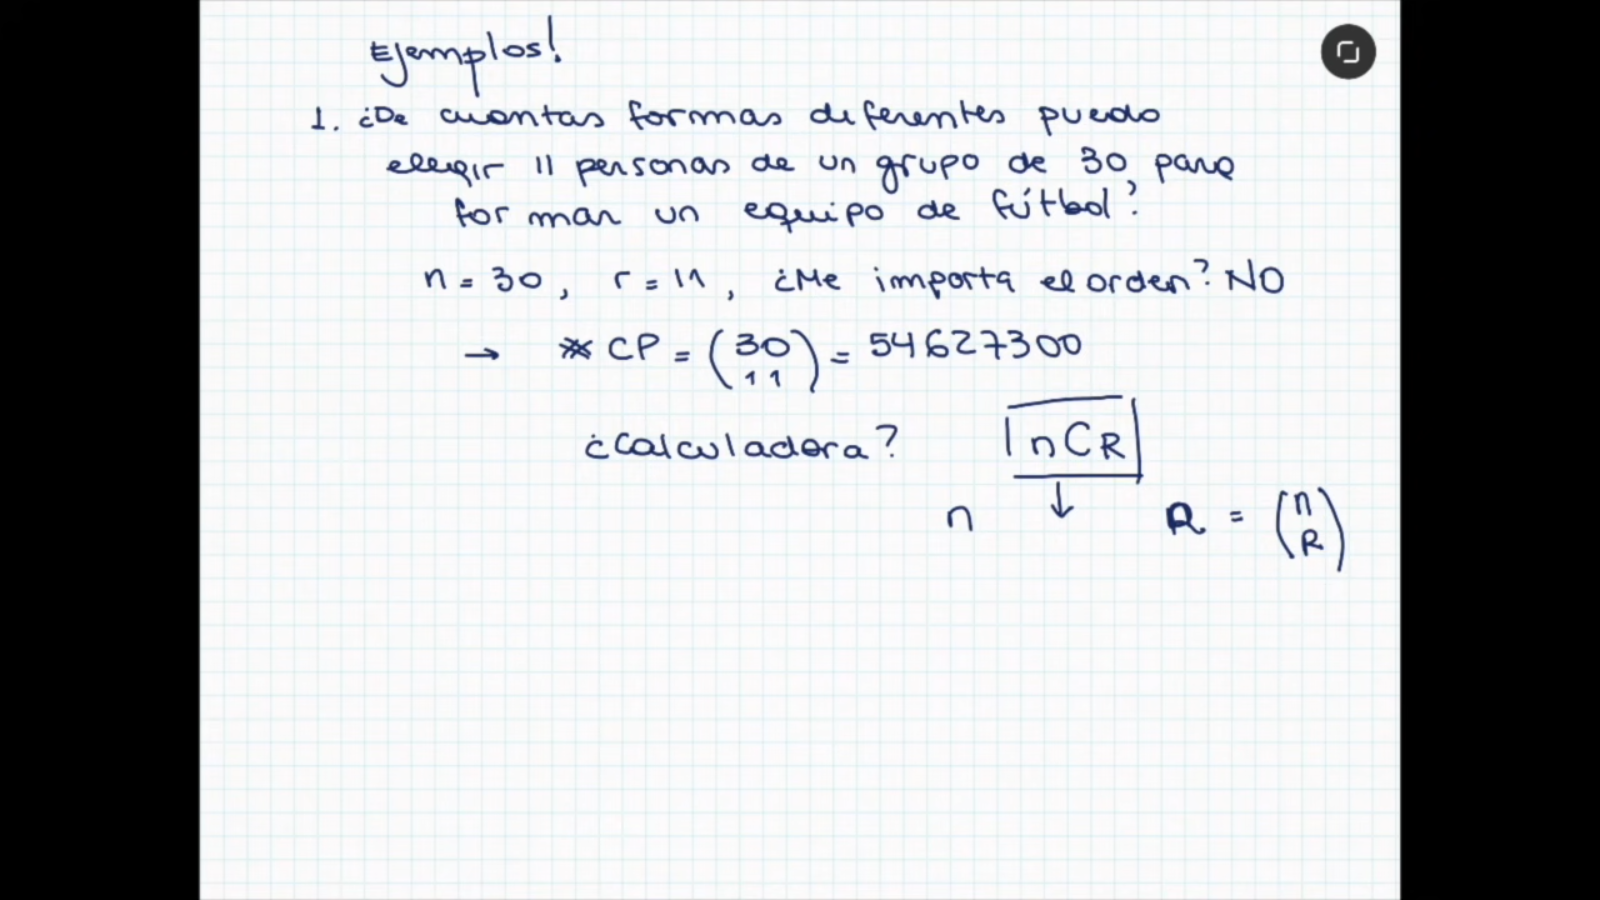 Ejemplos!
1. ¿De cuantas formas diferentes puedo
elegir 11 personas de un grupo de 30 para
formar un equipo de fútbol?
n = 30, r = 11, ¿Me importa el orden? NO
→ * CP = (30 11) = 54627300
¿Calculadora? nCR
n ↓ R = (n R)